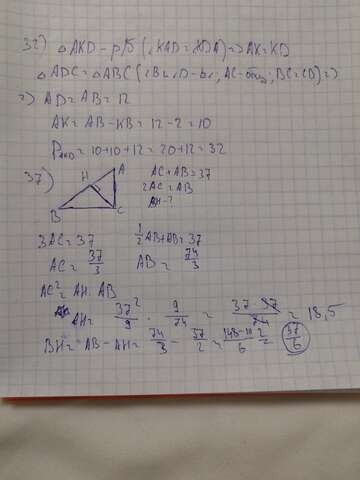 32) △AKD - р/б (∠KAD = ∠KDA) => AK = KD
△ADC = △ABC (∠B и ∠D - ; AC-общ; BC = CD) =>
=> AD = AB = 12
AK = AB - KB = 12 - 2 = 10
P AKD = 10 + 10 + 12 = 20 + 12 = 32
37)
A
H
B
C
AC + AB = 37
2AC = AB
AH - ?
3AC = 37
1/2 AB + AB = 37
AC = 37/3
AB = 74/3
AC² = AH · AB
AH = 37²/9 · 9/74 = 37 · 37/74 = 18,5
BH = AB - AH = 74/3 - 37/2 = 37/6